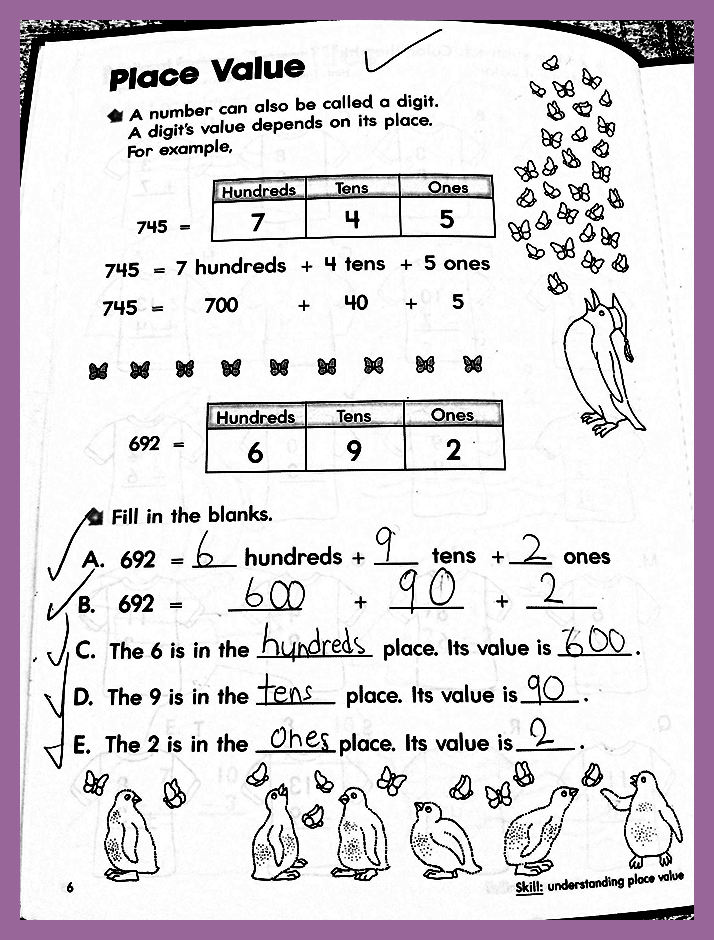 Place Value
A number can also be called a digit.
A digit's value depends on its place.
For example,
Hundreds Tens Ones
745 = 7 4 5
745 = 7 hundreds + 4 tens + 5 ones
745 = 700 + 40 + 5
Hundreds Tens Ones
692 = 6 9 2
Fill in the blanks.
A. 692 = 6 hundreds + 9 tens + 2 ones
B. 692 = 600 + 90 + 2
C. The 6 is in the hundreds place. Its value is 600.
D. The 9 is in the tens place. Its value is 90.
E. The 2 is in the ones place. Its value is 2.
6
Skill: understanding place value